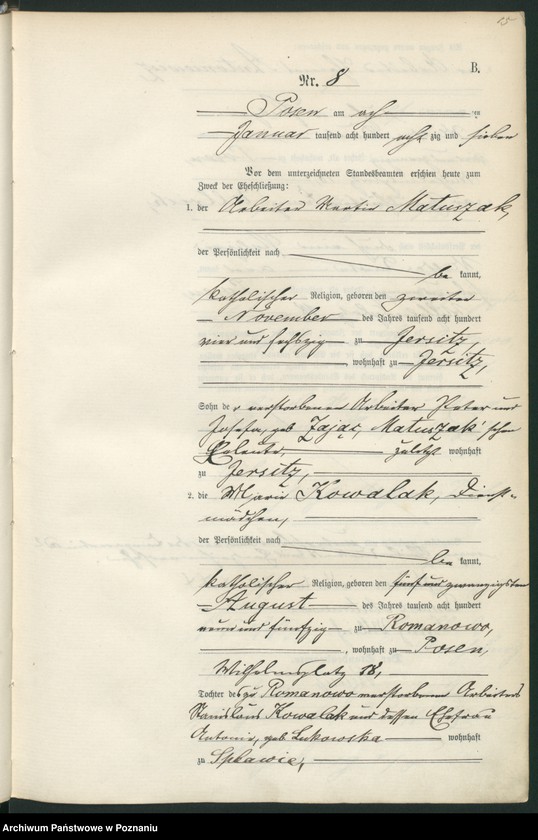 15
B.
Nr. 8
Posen am ach zu
Januar tausend acht hundert acht zig und sieben
Vor dem unterzeichneten Standesbeamten erschien heute zum
Zweck der Eheschließung:
1. der Arbeiter Martin Matuszak,
der Persönlichkeit nach
be kannt,
katholischer Religion, geboren den zweiten
November des Jahres tausend acht hundert
vier und sechszig zu Jersitz
, wohnhaft zu Jersitz,
Sohn der verstorbenen Arbeiter Peter und
Josefa, geb Zając, Matuszak'schen
Eheleute, zuletzt wohnhaft
zu Jersitz,
2. die Marie Kowalak, Dienst-
mädchen,
der Persönlichkeit nach
be kannt,
katholischer Religion, geboren den fünf und zwanzigsten
August des Jahres tausend acht hundert
neun und fünfzig zu Romanowo,
, wohnhaft zu Posen,
Wilhelmsplatz 18,
Tochter des zu Romanowo verstorbenen Arbeiters
Stanislaus Kowalak und dessen Ehefrau
Antonie, geb Lukowska wohnhaft
zu Spławie,
Archiwum Państwowe w Poznaniu